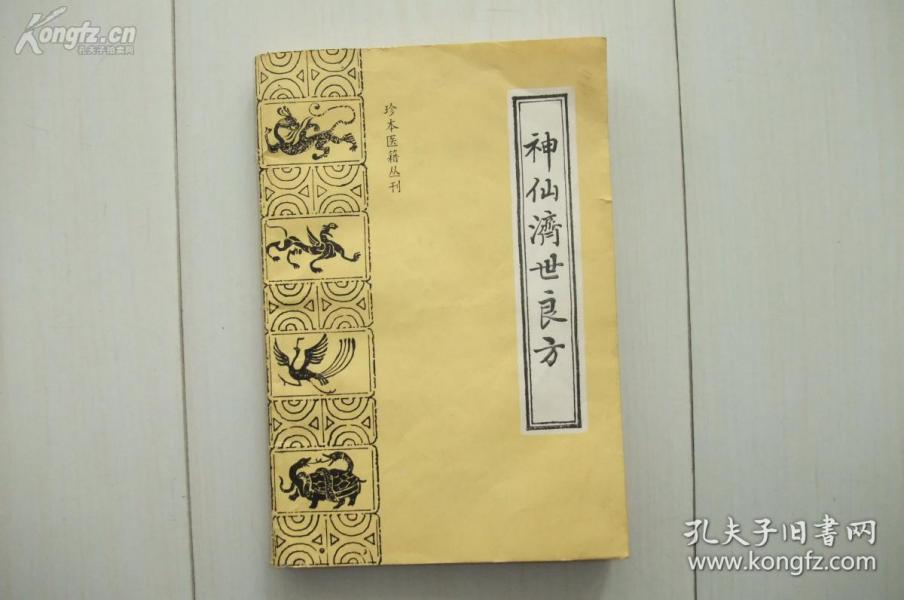 Kongfz.cn
孔夫子拍卖网
珍本医籍丛刊
神仙濟世良方
孔夫子旧书网
www.kongfz.com